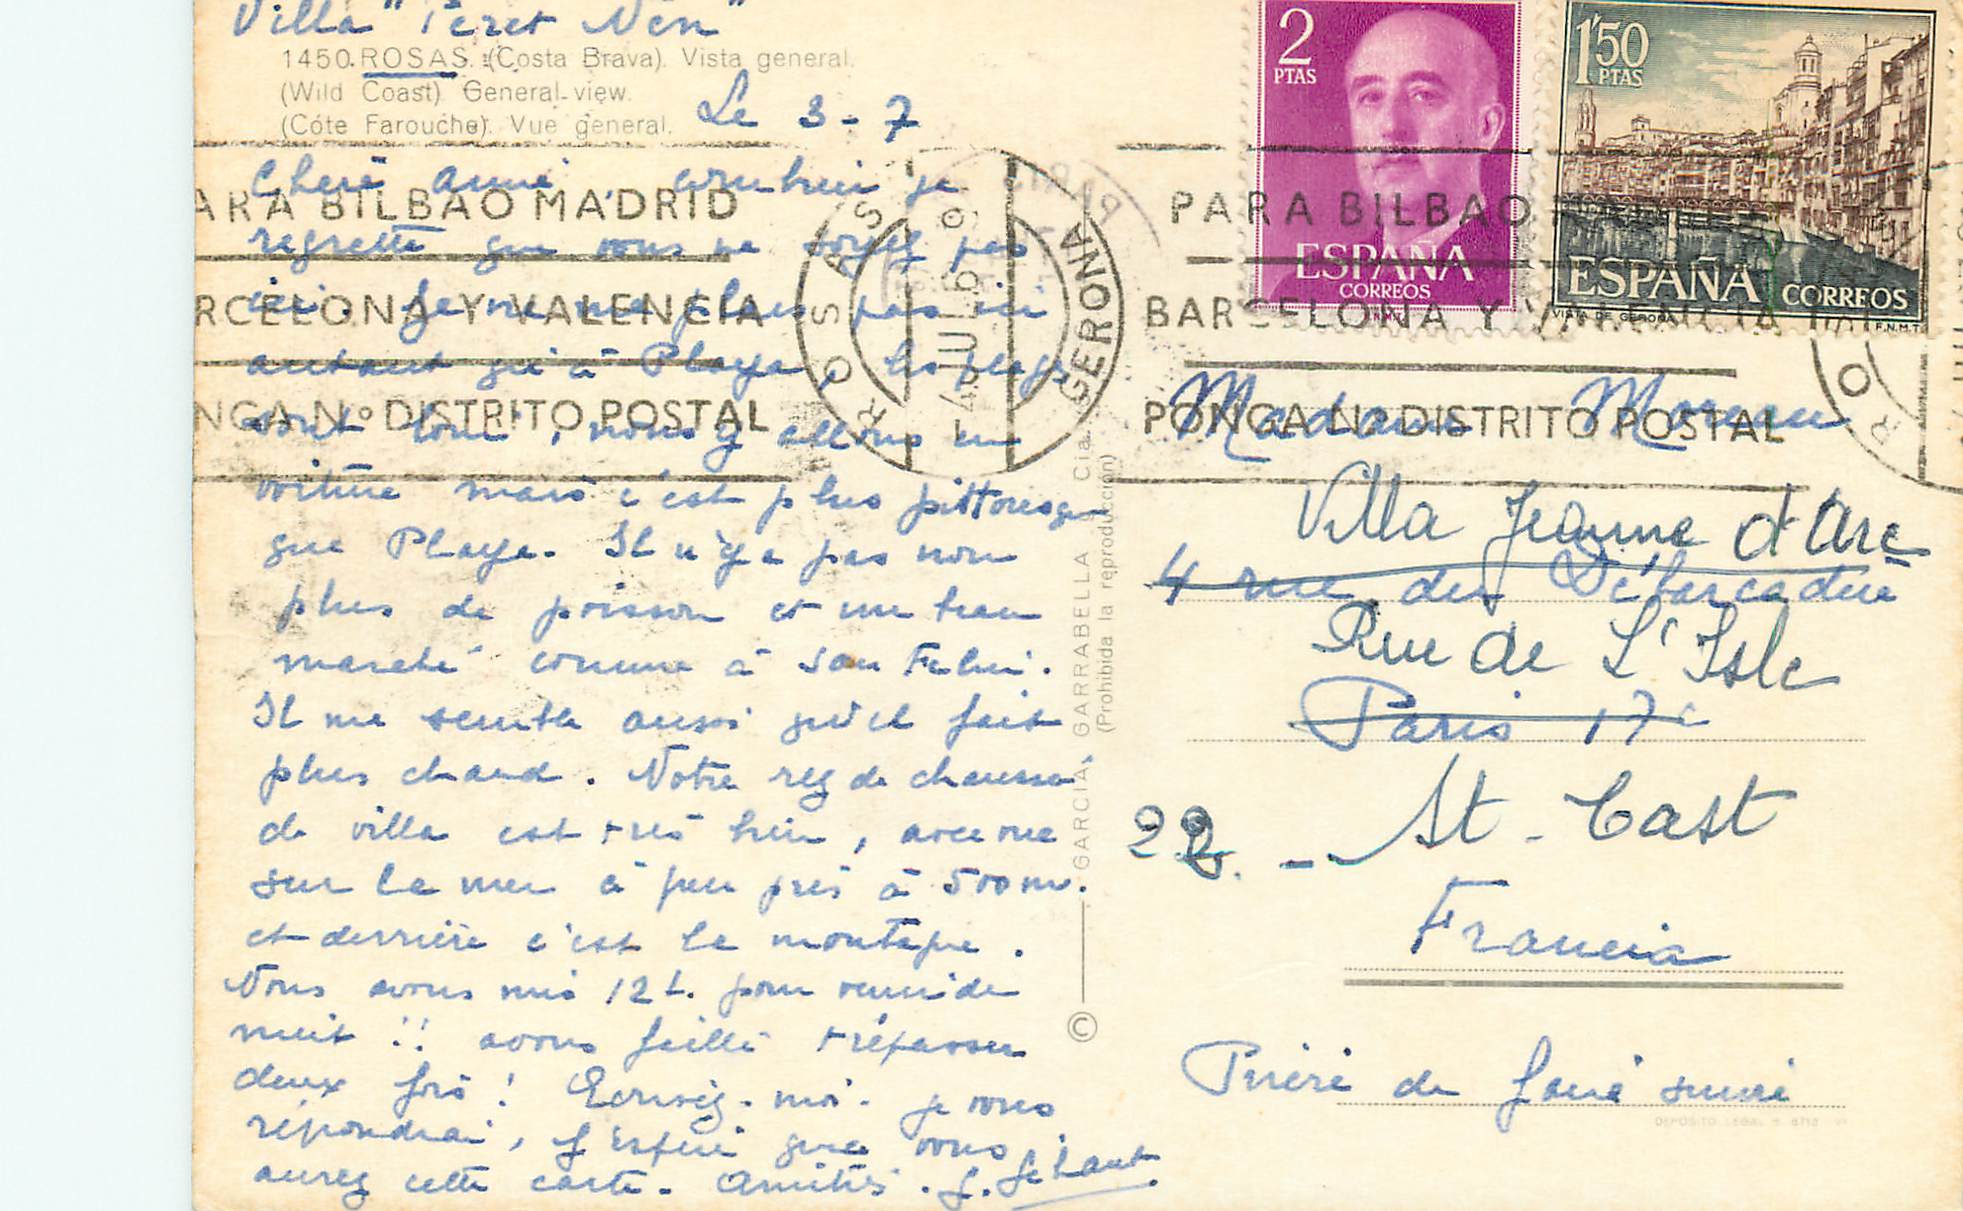 Villa "Peret Nen"
1450. ROSAS. (Costa Brava). Vista general.
(Wild Coast). General view.
(Côte Farouche). Vue general.
Le 3-7
Chère amie, combien je
regrette que vous ne soyez pas
ici. Je ne me plais pas ici
autant qu'à Playa, les plages
sont loin, nous y allons en
voiture mais c'est plus pittoresque
que Playa. Il n'y a pas non
plus de poisson et un beau
marché comme à San Feliu.
Il me semble aussi qu'il fait
plus chaud. Notre rez de chaussée
de villa est très bien, avec vue
sur la mer à peu près à 500 m.
et derrière c'est la montagne.
Nous avons mis 12 h. pour venir de
nuit !! avons failli trépasser
deux fois ! Ecrivez-moi. je vous
répondrai, j'espère que vous
aurez cette carte. Amitiés.
GARCIA GARRABELLA y Cia.
(Prohibida la reproducción)
©
2
PTAS
ESPAÑA
CORREOS
1'50
PTAS
ESPAÑA CORREOS
VISTA DE GERONA
F.N.M.T.
ARA BILBAO MADRID
RCELONA Y VALENCIA
NGA Nº DISTRITO POSTAL
ROSAS
GERONA
PARIS
PARA BILBAO
BARCELONA Y VALENCIA
PONGA Nº DISTRITO POSTAL
Madame Moreau
Villa Jeanne d'Arc
4 rue des Débarcadère
Rue de L'Isle
Paris 17e
22. - St-Cast
Francia
Prière de faire suivre
DEPOSITO LEGAL B.